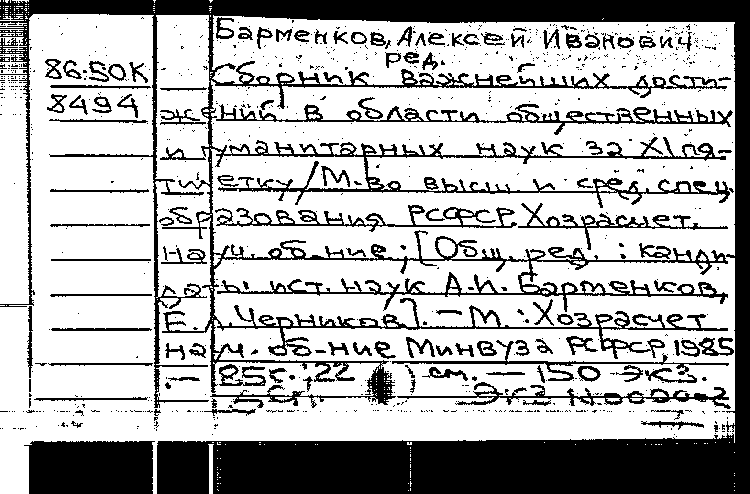 Барменков, Алексей Иванович
ред.
86:50К Сборник важнейших дости-
8494 жений в области общественных
и гуманитарных наук за XI пя-
тилетку/М-во высш. и сред. спец.
образования РСФСР. Хозрасчет.
науч. об-ние; [Общ. ред. : канди-
даты ист. наук А.И. Барменков,
Е.Л. Черников]. — М. : Хозрасчет
науч. об-ние Минвуза РСФСР, 1985
.— 85с.; 22 см. — 150 экз.
Экз